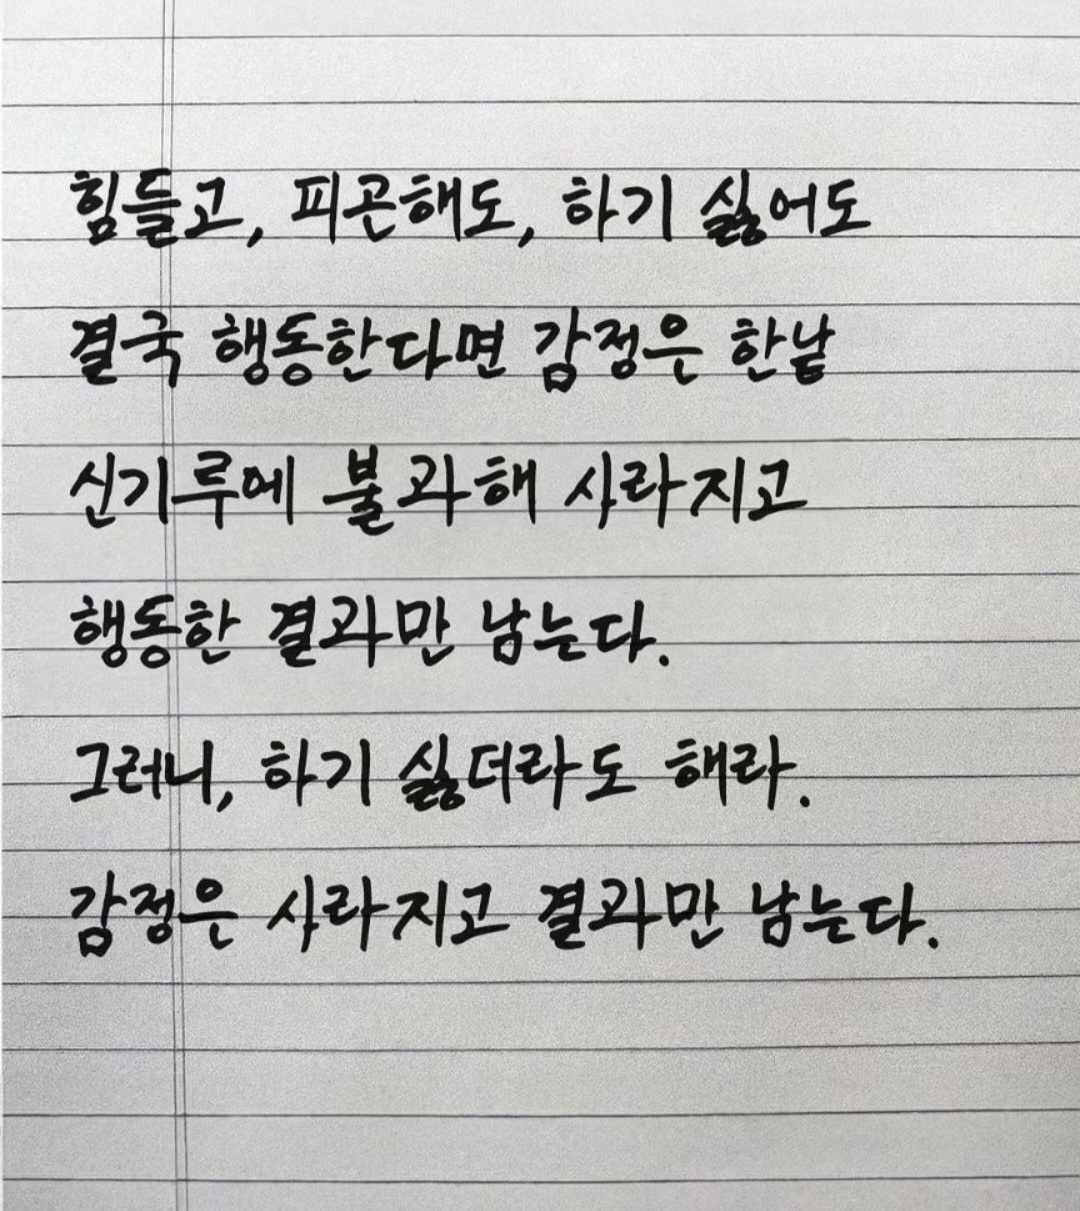 힘들고, 피곤해도, 하기 싫어도
결국 행동한다면 감정은 한낱
신기루에 불과해 사라지고
행동한 결과만 남는다.
그러니, 하기 싫더라도 해라.
감정은 사라지고 결과만 남는다.